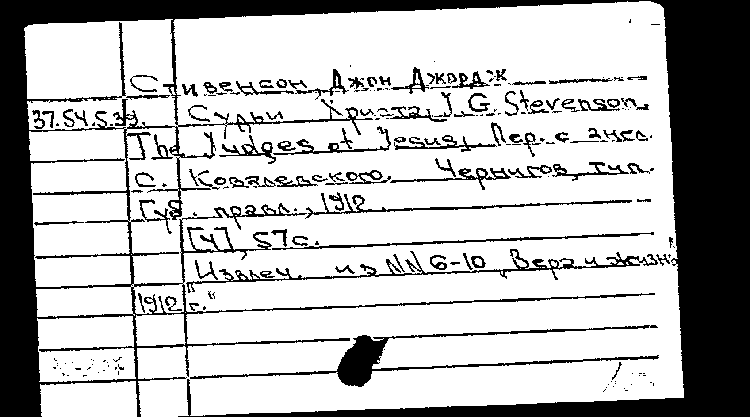 Стивенсон, Джон Джордж
37.54.5.39. Судьи Христа, J. G. Stevenson.
The Judges of Jesus, Пер. с англ.
С. Ковалевского. Чернигов, тип.
Губ. правл., 1912.
[4], 57с.
Извлеч. из NN 6-10 „Вера и жизнь"
1912 г."